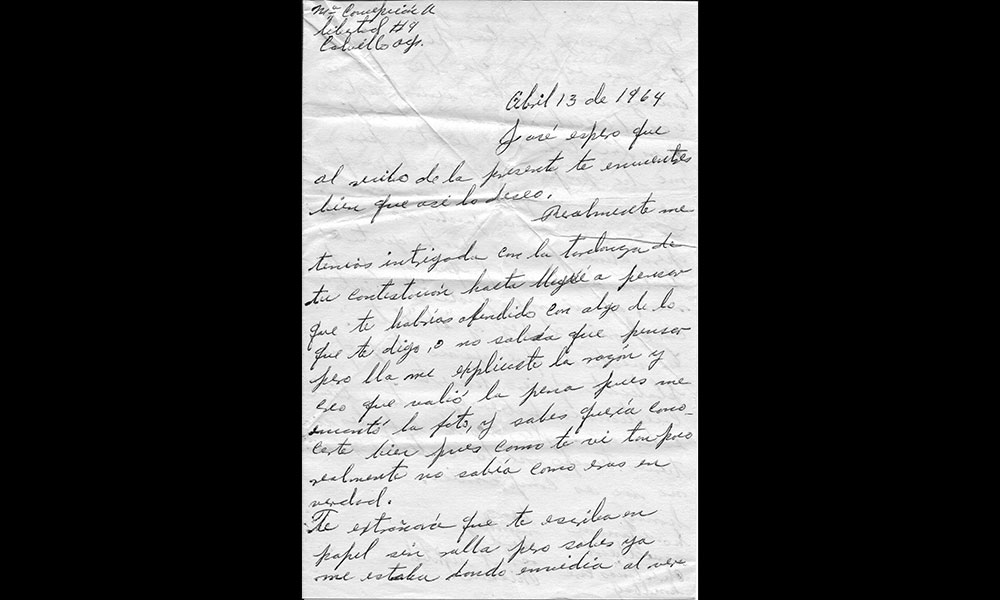 Mª Concepción A
Libertad #9
Calvillo Ags.
Abril 13 de 1964
José espero que
al recibo de la presente te encuentres
bien que asi lo deseo.
Realmente me
tenias intrigada con la tardanza de
tu contestación hasta llegué a pensar
que te habias ofendido con algo de lo
que te digo, o no sabia que pensar
pero lla me explicaste la razón y
creo que valió la pena pues me
encantó la foto, y sabes quería cono-
certe bien pues como te vi tan poco
realmente no sabía como eras en
verdad.
Te extrañará que te escriba en
papel sin ralla pero sabes ya
me estaba dando envidia al ver